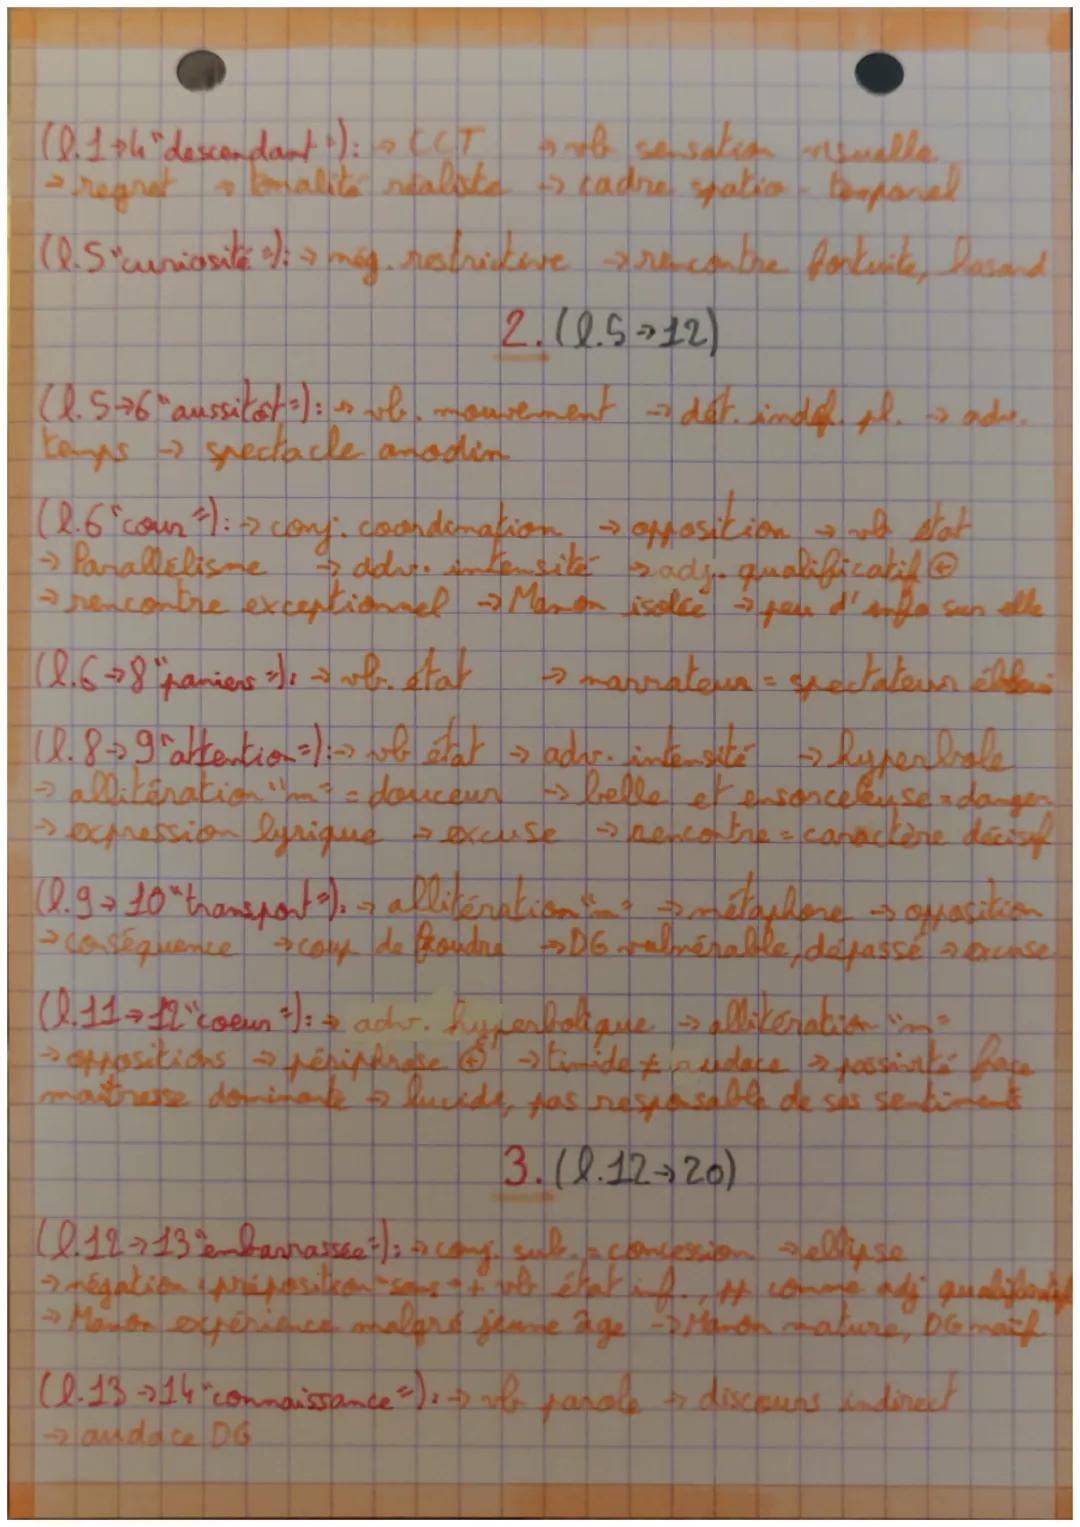 (l.1→4 "descendant"): → CCT → vb sensation visuelle
→ regret → tonalité réaliste → cadre spatio-temporel
(l.5 "curiosité"): → nég. restrictive → rencontre fortuite, hasard
2. (l.5→12)
(l.5→6 "aussitôt"): → vb. mouvement → dét. indéf. pl. → adv.
temps → spectacle anodin
(l.6 "cour"): → conj. coordination → opposition → vb état
→ Parallélisme → adv. intensité → adj. qualificatif ⊕
→ rencontre exceptionnel → Manon isolée → peu d'info sur elle
(l.6→8 "paniers"): → vb. état → narrateur = spectateur ébloui
(l.8→9 "attention"): → vb état → adv. intensité → hyperbole
→ allitération "m" = douceur → belle et ensorceleuse = danger
→ expression lyrique → excuse → rencontre = caractère décisif
(l.9→10 "transport"): → allitération "m" → métaphore → opposition
→ conséquence → coup de foudre → DG vulnérable, dépassé → excuse
(l.11→12 "coeur"): → adv. hyperbolique → allitération "m"
→ oppositions → périphrase ⊕ → timide ≠ audace → passivité face
maîtresse dominante → lucide, pas responsable de ses sentiments
3. (l.12→20)
(l.12→13 "embarrassée"): → conj. sub. = concession → ellipse
→ négation : préposition "sans" + vb état inf., pp comme adj qualificatif
→ Manon expérience malgré jeune âge → Manon mature, DG naïf
(l.13→14 "connaissance"): → vb parole → discours indirect
→ audace DG